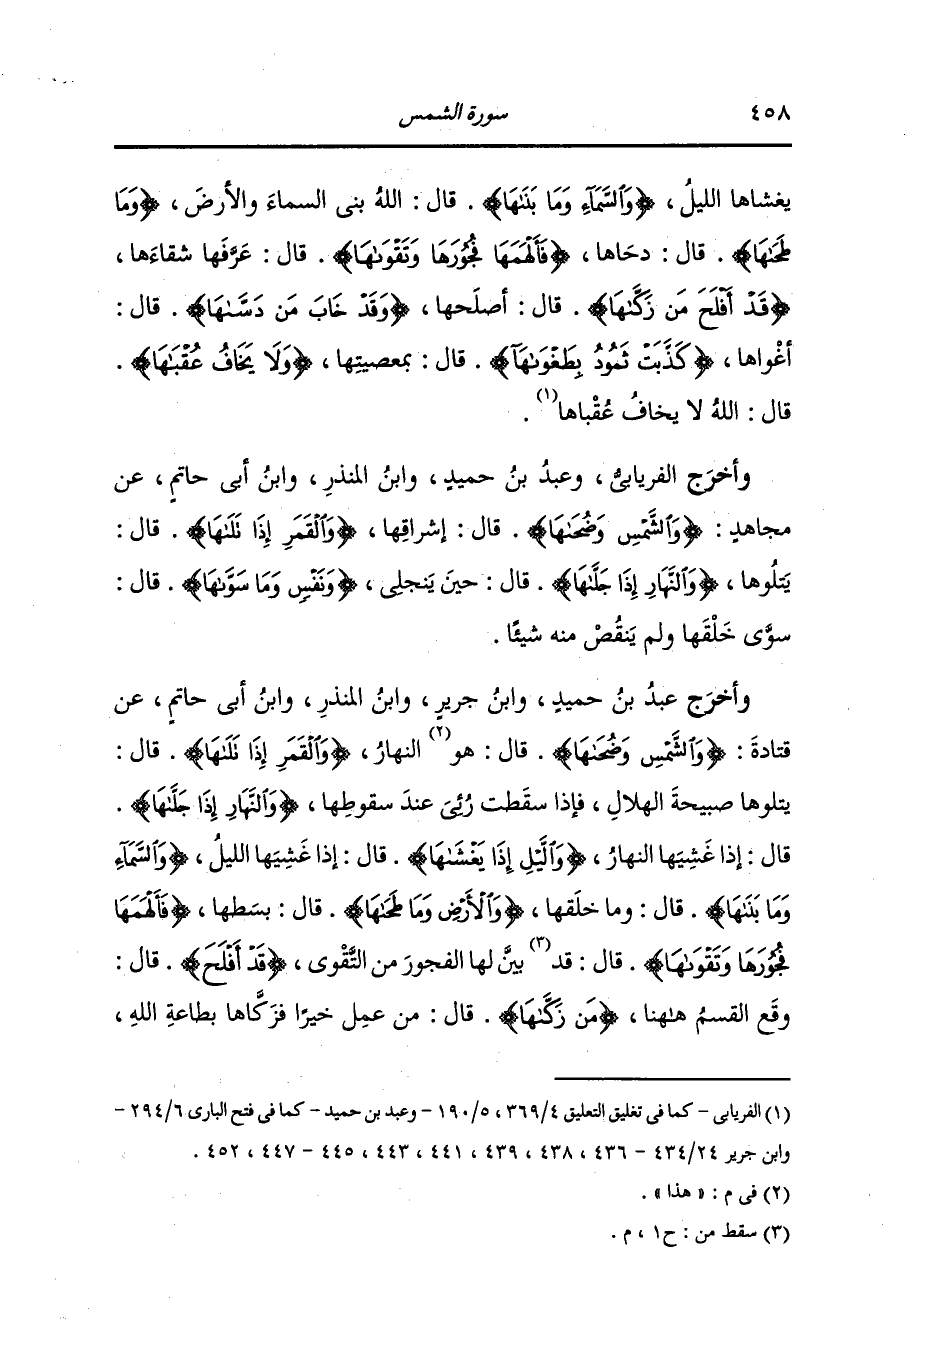 ٤٥٨ سورة الشمس
يغشاها الليلُ ، ﴿وَٱلسَّمَآءِ وَمَا بَنَىٰهَا﴾ . قال : اللهُ بنى السماءَ والأرضَ ، ﴿وَمَا
طَحَىٰهَا﴾ . قال : دحَاها ، ﴿فَأَلْهَمَهَا فُجُورَهَا وَتَقْوَىٰهَا﴾ . قال : عَرَّفَها شقاءَها ،
﴿قَدْ أَفْلَحَ مَن زَكَّىٰهَا﴾ . قال : أصلَحها ، ﴿وَقَدْ خَابَ مَن دَسَّىٰهَا﴾ . قال :
أغْواها ، ﴿كَذَّبَتْ ثَمُودُ بِطَغْوَىٰهَآ﴾ . قال : بمعصيتِها ، ﴿وَلَا يَخَافُ عُقْبَٰهَا﴾ .
قال : اللهُ لا يخافُ عُقْباها(١) .
وأخرَج الفريابىُّ ، وعبدُ بنُ حميدٍ ، وابنُ المنذرِ ، وابنُ أبى حاتمٍ ، عن
مجاهدٍ : ﴿وَٱلشَّمْسِ وَضُحَىٰهَا﴾ . قال : إشراقِها ، ﴿وَٱلْقَمَرِ إِذَا تَلَىٰهَا﴾ . قال :
يَتلُوها ، ﴿وَٱلنَّهَارِ إِذَا جَلَّىٰهَا﴾ . قال : حينَ يَنجلِى ، ﴿وَنَفْسٍ وَمَا سَوَّىٰهَا﴾ . قال :
سوَّى خَلْقَها ولم يَنقُصْ منه شيئًا .
وأخرَج عبدُ بنُ حميدٍ ، وابنُ جريرٍ ، وابنُ المنذرِ ، وابنُ أبى حاتمٍ ، عن
قتادةَ : ﴿وَٱلشَّمْسِ وَضُحَىٰهَا﴾ . قال : هو(٢) النهارُ ، ﴿وَٱلْقَمَرِ إِذَا تَلَىٰهَا﴾ . قال :
يتلوها صبيحةَ الهلالِ ، فإذا سقَطت رُئِىَ عندَ سقوطِها ، ﴿وَٱلنَّهَارِ إِذَا جَلَّىٰهَا﴾ .
قال : إذا غَشِيَها النهارُ ، ﴿وَٱلَّيْلِ إِذَا يَغْشَىٰهَا﴾ . قال : إذا غَشِيَها الليلُ ، ﴿وَٱلسَّمَآءِ
وَمَا بَنَىٰهَا﴾ . قال : وما خلَقها ، ﴿وَٱلْأَرْضِ وَمَا طَحَىٰهَا﴾ . قال : بسَطها ، ﴿فَأَلْهَمَهَا
فُجُورَهَا وَتَقْوَىٰهَا﴾ . قال : قد(٣) بينَّ لها الفجورَ من التَّقْوى ، ﴿قَدْ أَفْلَحَ﴾ . قال :
وقَع القسمُ هٰهنا ، ﴿مَن زَكَّىٰهَا﴾ . قال : من عمِل خيرًا فزكَّاها بطاعةِ اللهِ ،
(١) الفريابى – كما فى تغليق التعليق ٣٦٩/٤ ، ١٩٠/٥ – وعبد بن حميد – كما فى فتح البارى ٢٩٤/٦ –
وابن جرير ٤٣٤/٢٤ – ٤٣٦ ، ٤٣٨ ، ٤٣٩ ، ٤٤١ ، ٤٤٣ ، ٤٤٥ – ٤٤٧ ، ٤٥٢ .
(٢) فى م : « هذا » .
(٣) سقط من : ح١ ، م .